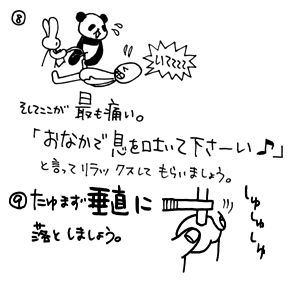 ⑧
いててててて
そしてここが最も痛い。
「おなかで息を吐いて下さーい♪」
と言ってリラックスしてもらいましょう。
⑨たゆまず垂直に
落としましょう。
しゅ
しゅ
しゅ